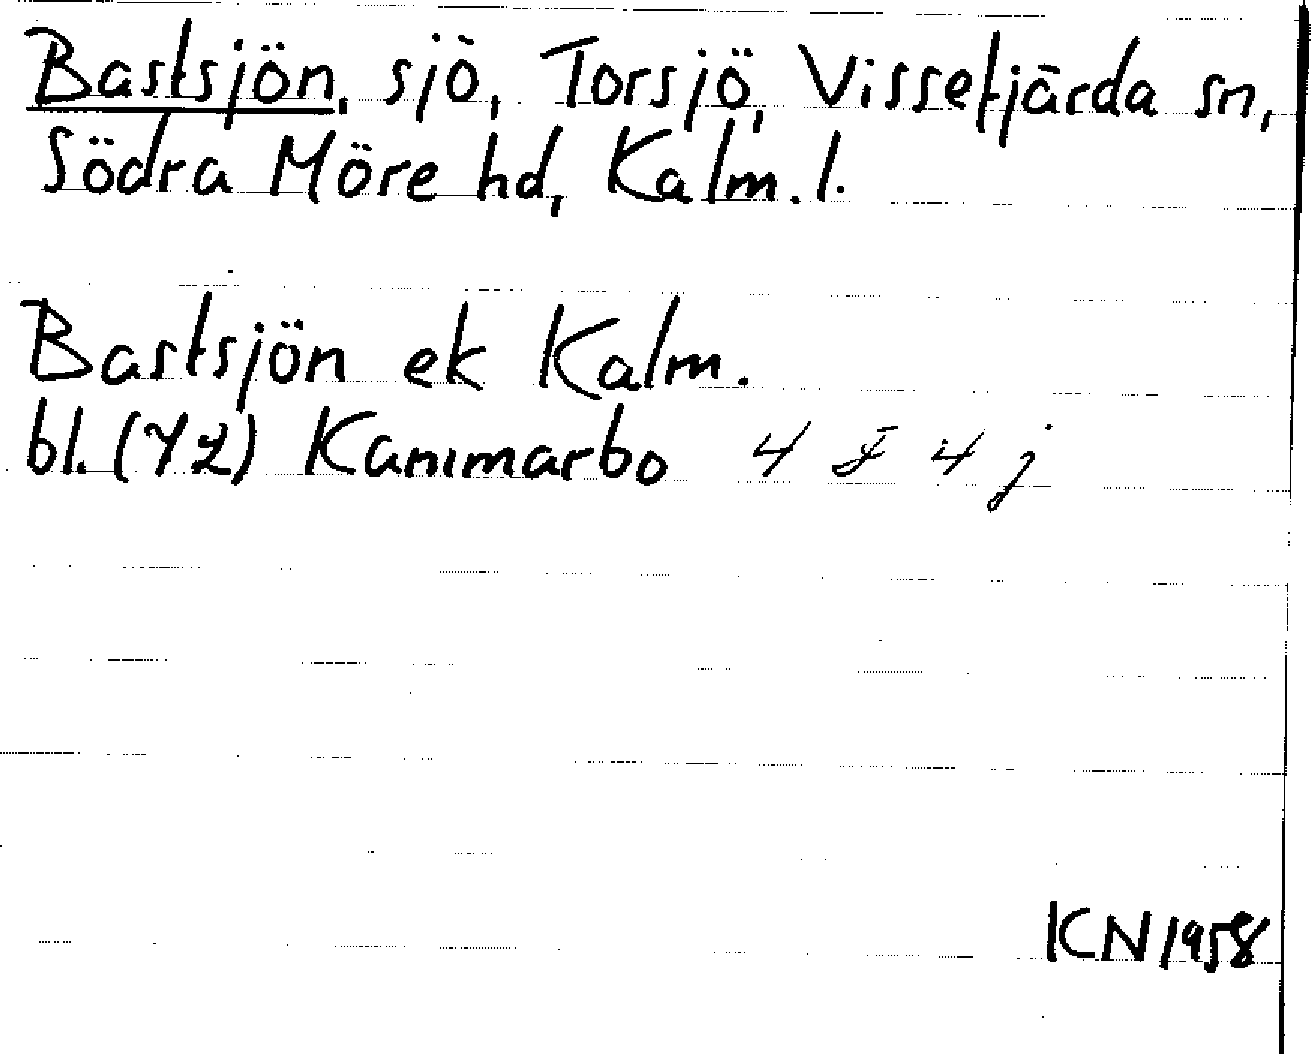 Bastsjön, sjö, Torsjö, Vissefjärda sn,
Södra Möre hd, Kalm. l.
Bastsjön ek Kalm.
bl. (YZ) Kammarbo 4 F 4 j
KN 1958